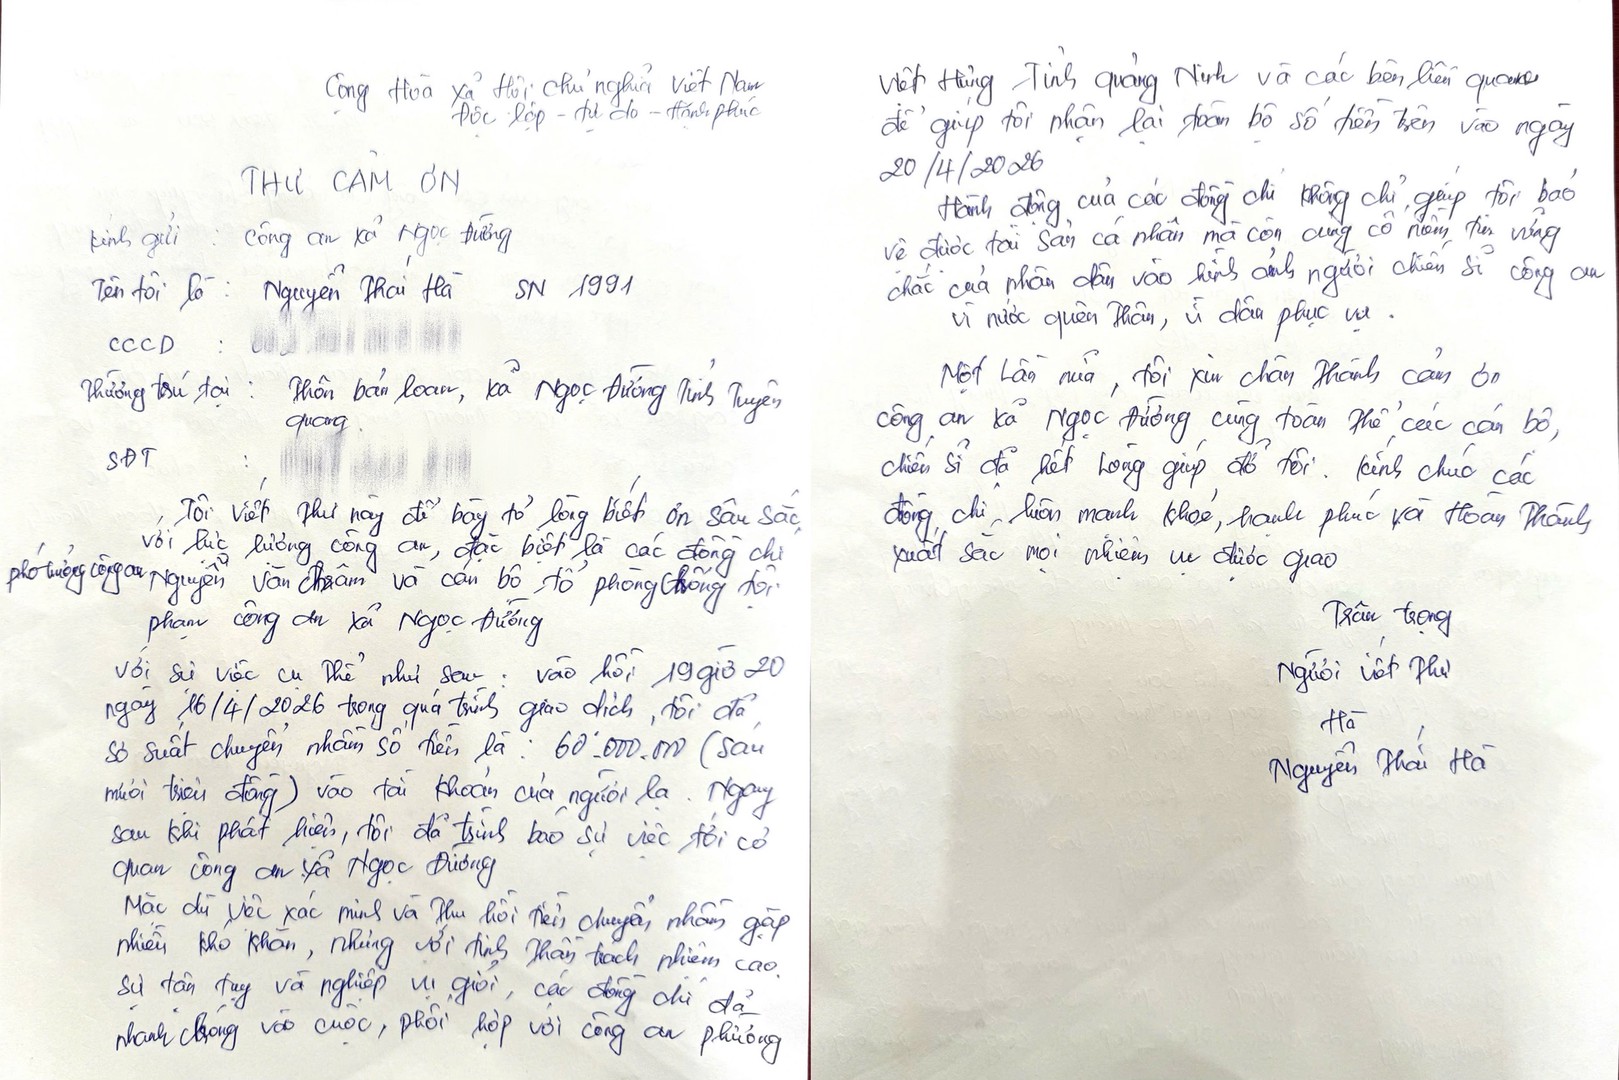 Cộng Hoà xã Hội chủ nghĩa Việt Nam
Độc lập - tự do - Hạnh phúc
THƯ CẢM ƠN
Kính gửi : công an xã Ngọc Đường
Tên tôi là : Nguyễn Thái Hà SN 1991
CCCD :
Thường trú tại : Thôn bản loan, xã Ngọc Đường Tỉnh Tuyên
quang.
SĐT :
Tôi viết thư này để bày tỏ lòng biết ơn sâu sắc
với lực lượng công an, đặc biệt là các đồng chí
phó trưởng công an Nguyễn Văn Châm và cán bộ tổ phòng chống tội
phạm công an xã Ngọc Đường
Với sự việc cụ thể như sau : vào hồi 19 giờ 20
ngày 16/4/2026 trong quá trình giao dịch, tôi đã
sơ suất chuyển nhầm số tiền là : 60.000.000 (sáu
mươi triệu đồng) vào tài khoản của người lạ. Ngay
sau khi phát hiện, tôi đã trình báo sự việc tới cơ
quan công an xã Ngọc Đường
Mặc dù việc xác minh và thu hồi tiền chuyển nhầm gặp
nhiều khó khăn, nhưng với tinh thần trách nhiệm cao,
sự tận tụy và nghiệp vụ giỏi, các đồng chí đã
nhanh chóng vào cuộc, phối hợp với công an phường
Việt Hưng Tỉnh quảng Ninh và các bên liên quan
để giúp tôi nhận lại toàn bộ số tiền trên vào ngày
20/4/2026
Hành động của các đồng chí không chỉ giúp tôi bảo
vệ được tài sản cá nhân mà còn củng cố niềm tin vững
chắc của nhân dân vào hình ảnh người chiến sĩ công an
vì nước quên thân, vì dân phục vụ.
Một Lần nữa, tôi xin chân thành cảm ơn
công an xã Ngọc Đường cùng toàn thể các cán bộ,
chiến sĩ đã hết Lòng giúp đỡ tôi. Kính chúc các
đồng chí luôn mạnh khoẻ, hạnh phúc và Hoàn Thành
xuất sắc mọi nhiệm vụ được giao
Trân trọng
Người viết thư
Hà
Nguyễn Thái Hà